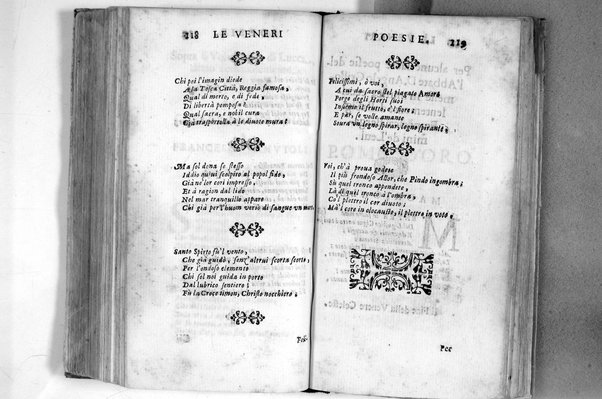 218 LE VENERI
Chi poi l'imagin diede
A la Tosca Città, Reggia famosa,
Qual di merto, e di fede,
Di libertà pomposa?
Qual sacra, e nobil cura
Già trasportolla à le diuote mura?
Ma sol dena se stesso
Iddio quiui scolpito al popol fido,
Già ne lor cori impresso,
Et à ragion dal lido
Nel mar tranquillo appare
Chi già per l'huom versò di sangue vn mare.
Santo Spirto fù'l vento,
Che già guidò, senz'altrui scorta forte,
Per l'ondoso elemento
Chi sol noi guida in porto
Dal lubrico sentiero;
Fù la Croce timon, Christo nocchiero;
Feli-
POESIE. 219
Felicissimi, ò voi,
A cui da sacro stel piagato Amore
Porge degli Horti suoi
Insieme il frutto, e'l fiore,
E pàr, se volle amante
Soura vn legno spirar, legno spirante;
Voi, ch'à proua godete
Il più frondoso Allor, che Pindo ingombra;
Sù quel tronco appendete,
Là di quel tronco à l'ombra,
Co'l plettro il cor diuoto;
Mà'l core in olocausto, il plettro in voto,
Poe